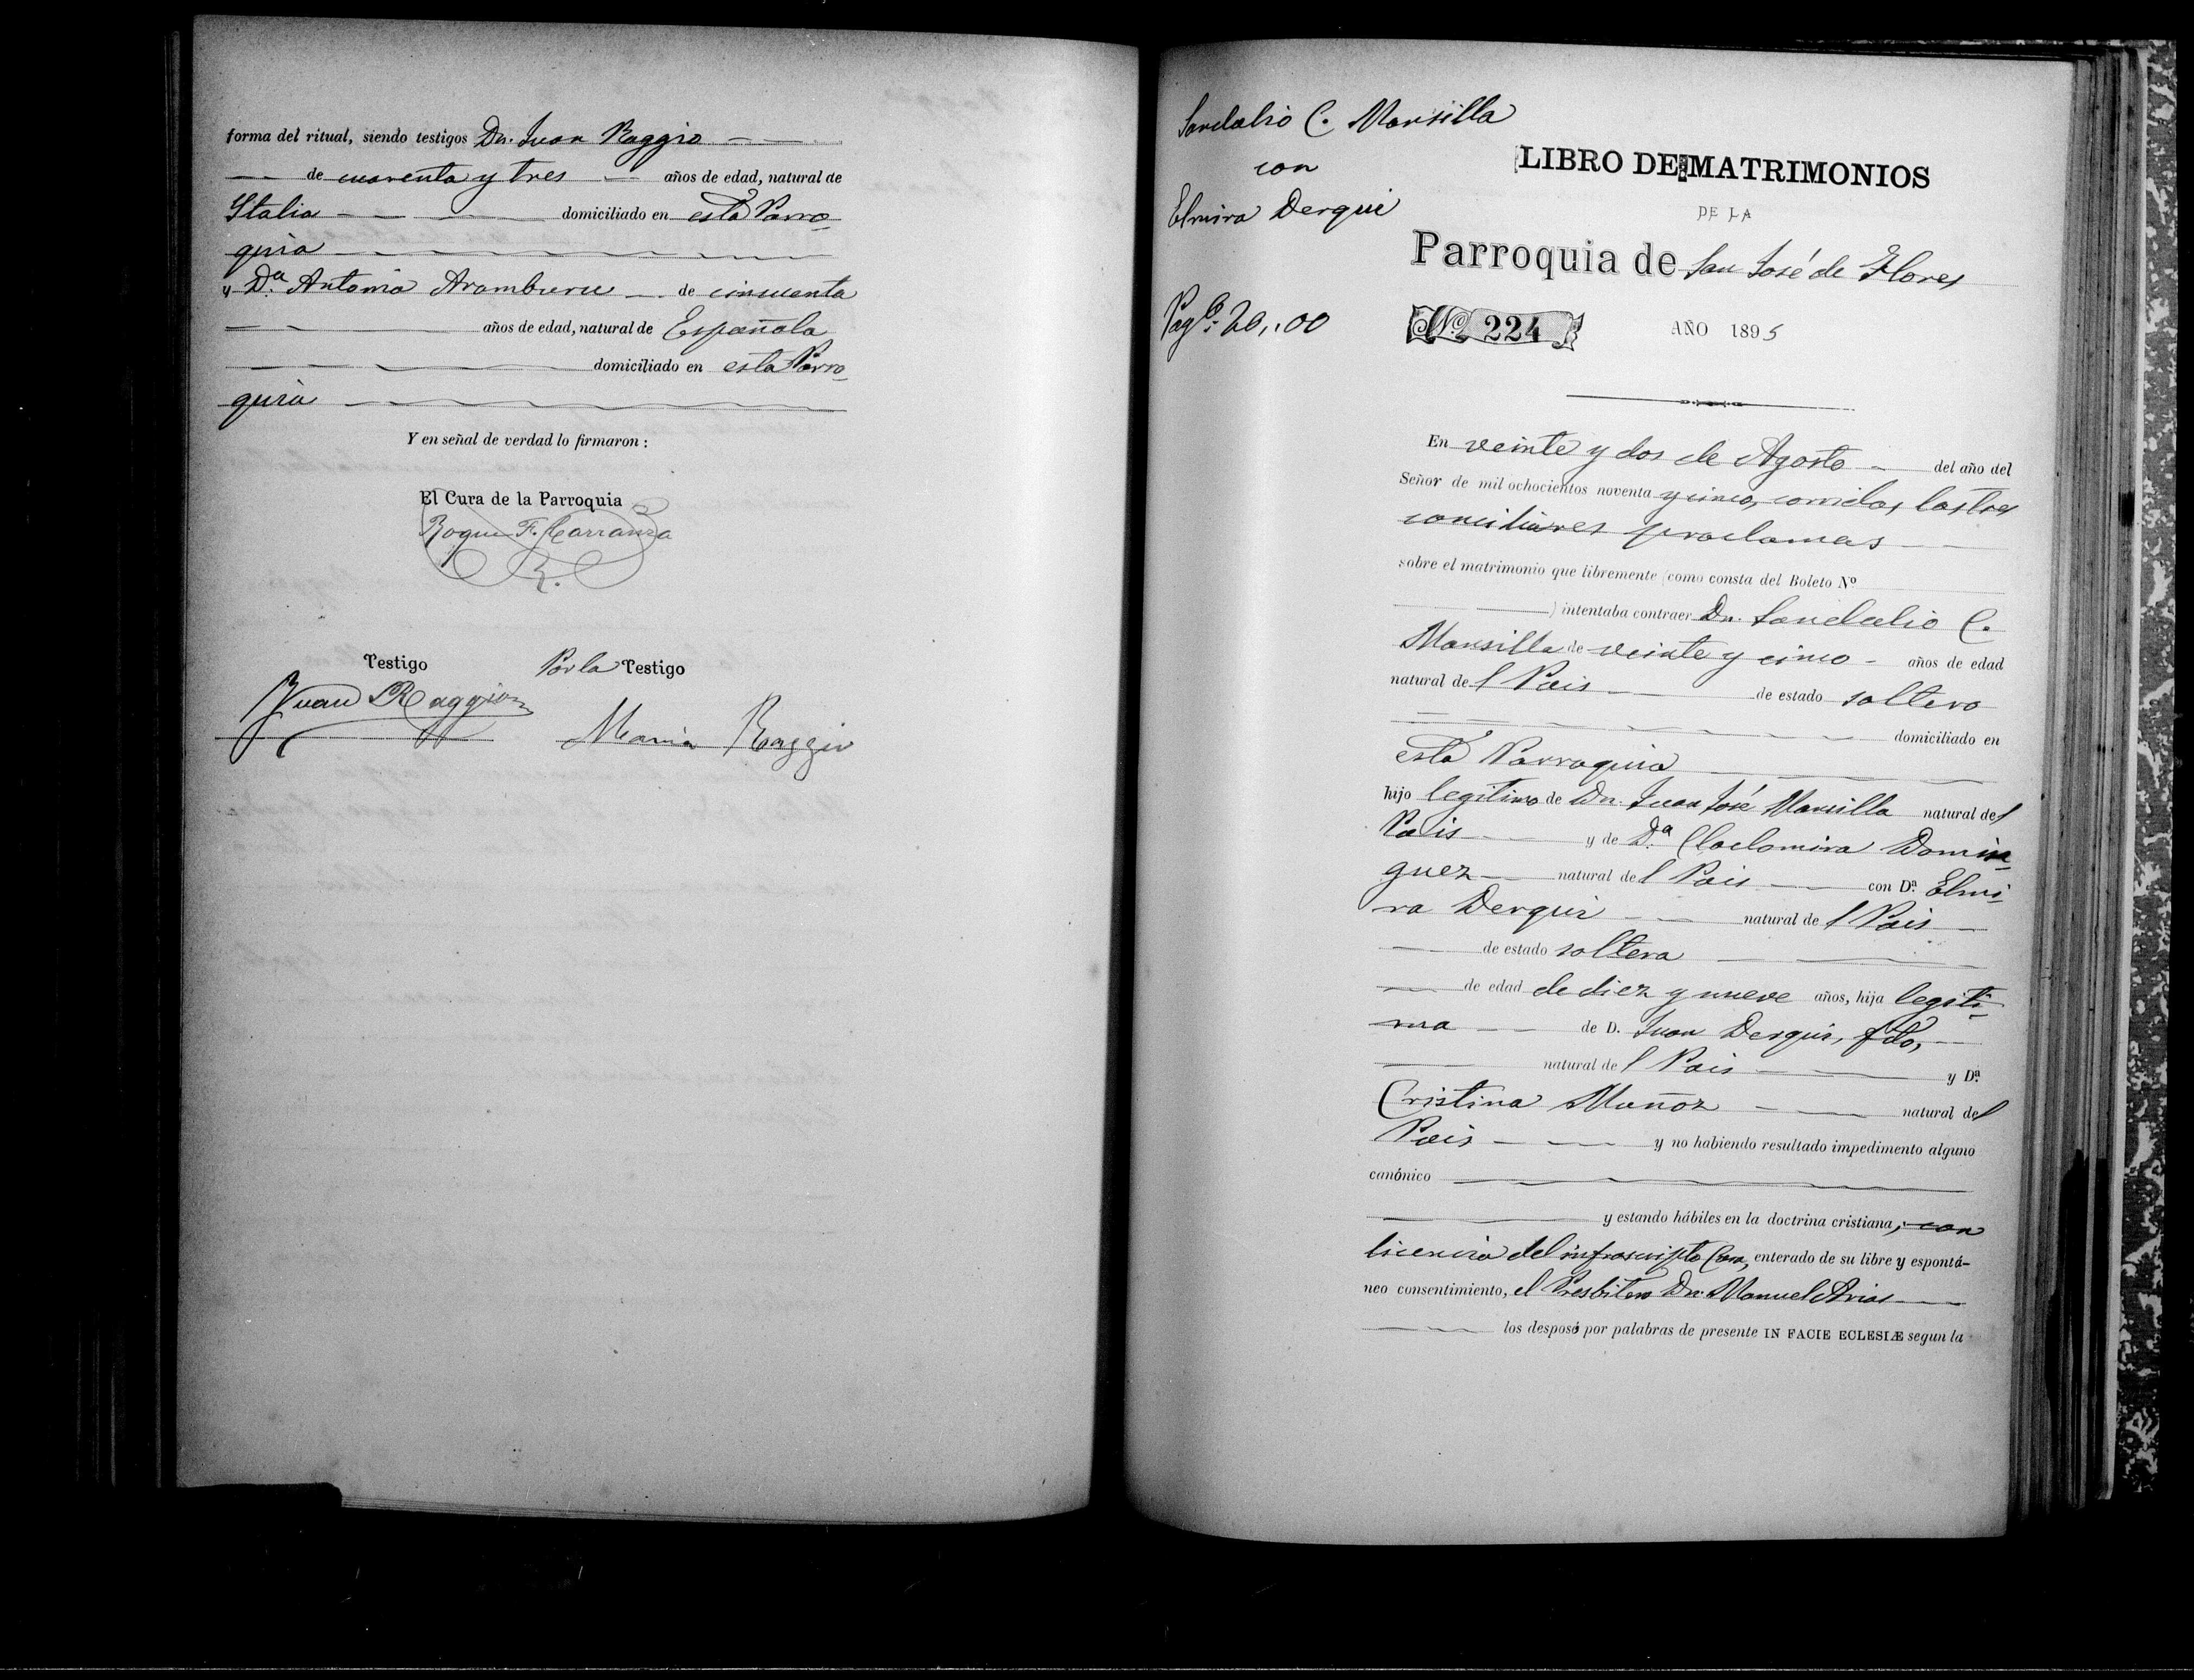 forma del ritual, siendo testigos Dn. Juan Raggio
de cuarenta y tres años de edad, natural de
Italia domiciliado en esta Parro-
quia
y Da. Antonia Aramburu de cincuenta
años de edad, natural de Española
domiciliado en esta Parro-
quia
Y en señal de verdad lo firmaron:
El Cura de la Parroquia
Roque F. Carranza
Testigo Por la Testigo
Juan Raggio
Maria Raggio
Sandalio C. Mansilla
con
Elmira Derqui
Pagó: 20,,00
LIBRO DE MATRIMONIOS
DE LA
Parroquia de San José de Flores
No. 224 AÑO 1895
En veinte y dos de Agosto del año del
Señor de mil ochocientos noventa y cinco, corridas las tres
conciliares proclamas
sobre el matrimonio que libremente (como consta del Boleto Nº
) intentaba contraer Dn. Sandalio C.
Mansilla de veinte y cinco años de edad
natural del Pais de estado soltero
domiciliado en
esta Parroquia
hijo legitimo de Dn. Juan José Mansilla natural del
Pais y de Da. Clodomira Domin-
guez natural del Pais con Da. Elmi-
ra Derqui natural del Pais
de estado soltera
de edad de diez y nueve años, hija legiti-
ma de D. Juan Derqui, fdo,
natural del Pais y Da.
Cristina Muñoz natural del
Pais y no habiendo resultado impedimento alguno
canónico
y estando hábiles en la doctrina cristiana, con
licencia del infrascripto Cura, enterado de su libre y espontá-
neo consentimiento, el Presbitero Dn. Manuel Arias
los desposó por palabras de presente IN FACIE ECLESIÆ segun la